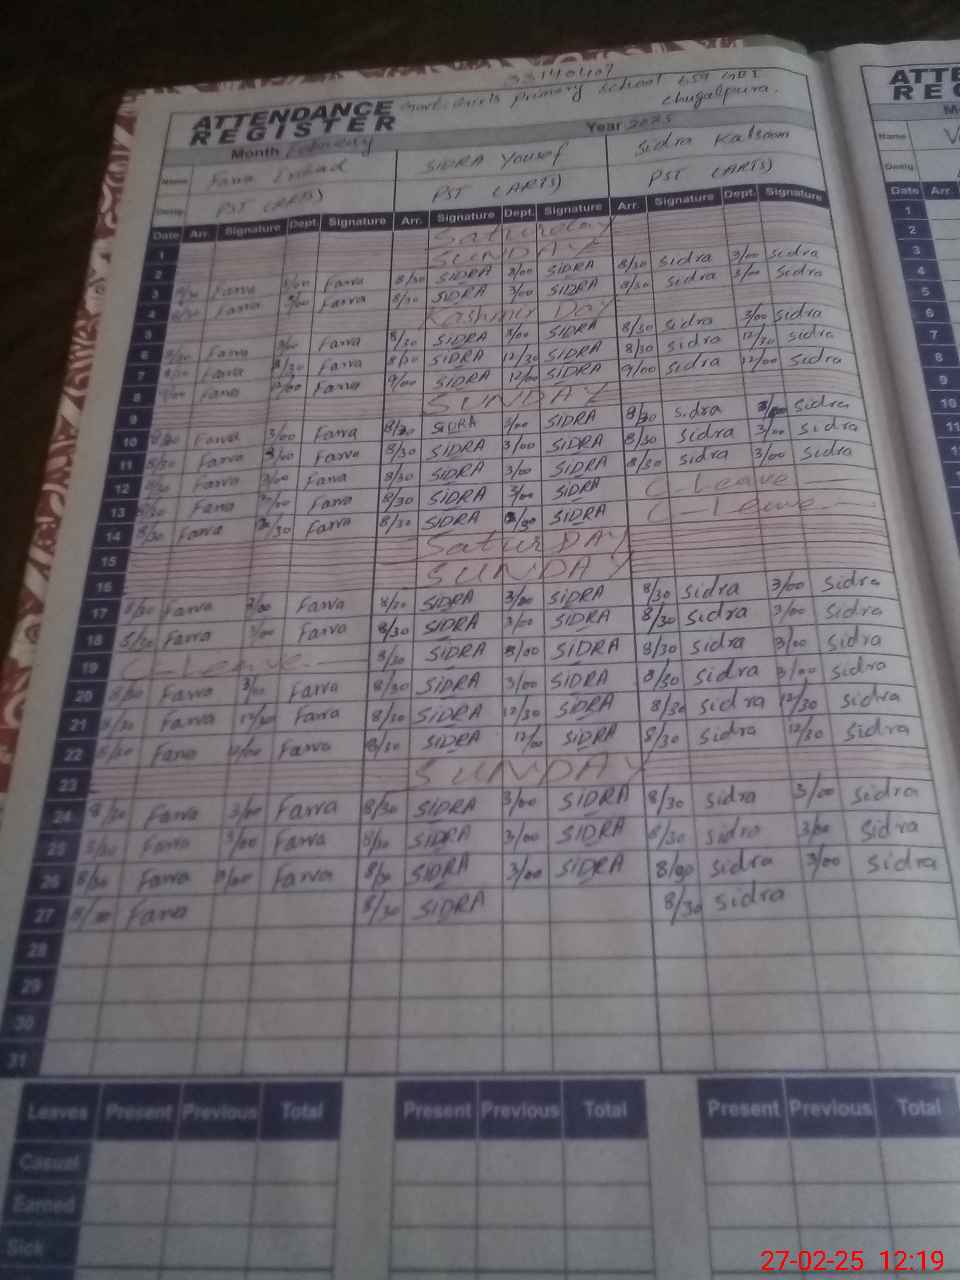 33140407
ATTENDANCE Govt. Girls primary School 659 GB I
REGISTER chugalpura.
Month February Year 2025
Name Farva SIDRA Yousaf Sidra Kalsoom
Desig PST (ARTS) PST (ARTS) PST (ARTS)
Date Arr. Signature Dept. Signature Arr. Signature Dept. Signature Arr. Signature Dept. Signature
1 Saturday
2 SUNDAY
3 8/30 Farva 3/00 Farva 8/30 SIDRA 3/00 SIDRA 8/30 sidra 3/00 sidra
4 8/30 Farva 3/00 Farva 8/30 SIDRA 3/00 SIDRA 8/30 sidra 3/00 sidra
5 Kashmir Day
6 8/30 Farva 3/00 Farva 8/30 SIDRA 3/00 SIDRA 8/30 sidra 3/00 sidra
7 8/30 Farva Farva 8/30 SIDRA 12/30 SIDRA 8/30 sidra 12/30 sidra
8 9/00 Farva 12/00 Farva 9/00 SIDRA 12/00 SIDRA 9/00 sidra 12/00 sidra
9 SUNDAY
10 8/30 Farva 3/00 Farva 8/30 SIDRA 3/00 SIDRA 8/30 sidra sidra
11 8/30 Farva 3/00 Farva 8/30 SIDRA 3/00 SIDRA 8/30 sidra 3/00 sidra
12 8/30 Farva 3/00 Farva 8/30 SIDRA 3/00 SIDRA 8/30 sidra 3/00 sidra
13 8/30 Farva 3/00 Farva 8/30 SIDRA 3/00 SIDRA C-Leave
14 8/30 Farva Farva 8/30 SIDRA SIDRA C-Leave
15 SaturDAY
16 SUNDAY
17 8/30 Farva 3/00 Farva 8/30 SIDRA 3/00 SIDRA 8/30 sidra 3/00 sidra
18 8/30 Farva 3/00 Farva 8/30 SIDRA 3/00 SIDRA 8/30 sidra 3/00 sidra
19 C-Leave 8/30 SIDRA 3/00 SIDRA 8/30 sidra 3/00 sidra
20 8/30 Farva 3/00 Farva 8/30 SIDRA 3/00 SIDRA 8/30 sidra 3/00 sidra
21 8/30 Farva 12/30 Farva 8/30 SIDRA 12/30 SIDRA 8/30 sidra 12/30 sidra
22 8/30 Farva 12/00 Farva 8/30 SIDRA 12/00 SIDRA 8/30 sidra 12/30 sidra
23 SUNDAY
24 8/30 Farva 3/00 Farva 8/30 SIDRA 3/00 SIDRA 8/30 sidra 3/00 sidra
25 8/30 Farva 3/00 Farva 8/30 SIDRA 3/00 SIDRA 8/30 sidra 3/00 sidra
26 8/30 Farva 3/00 Farva 8/30 SIDRA 3/00 SIDRA sidra 3/00 sidra
27 8/30 Farva 8/30 SIDRA 8/30 sidra
28
29
30
31
Leaves Present Previous Total Present Previous Total Present Previous Total
Casual
Earned
Sick
ATTE
REG
Name
Desig
Date Arr.
1
2
3
4
5
6
7
8
9
10
11
27-02-25 12:19